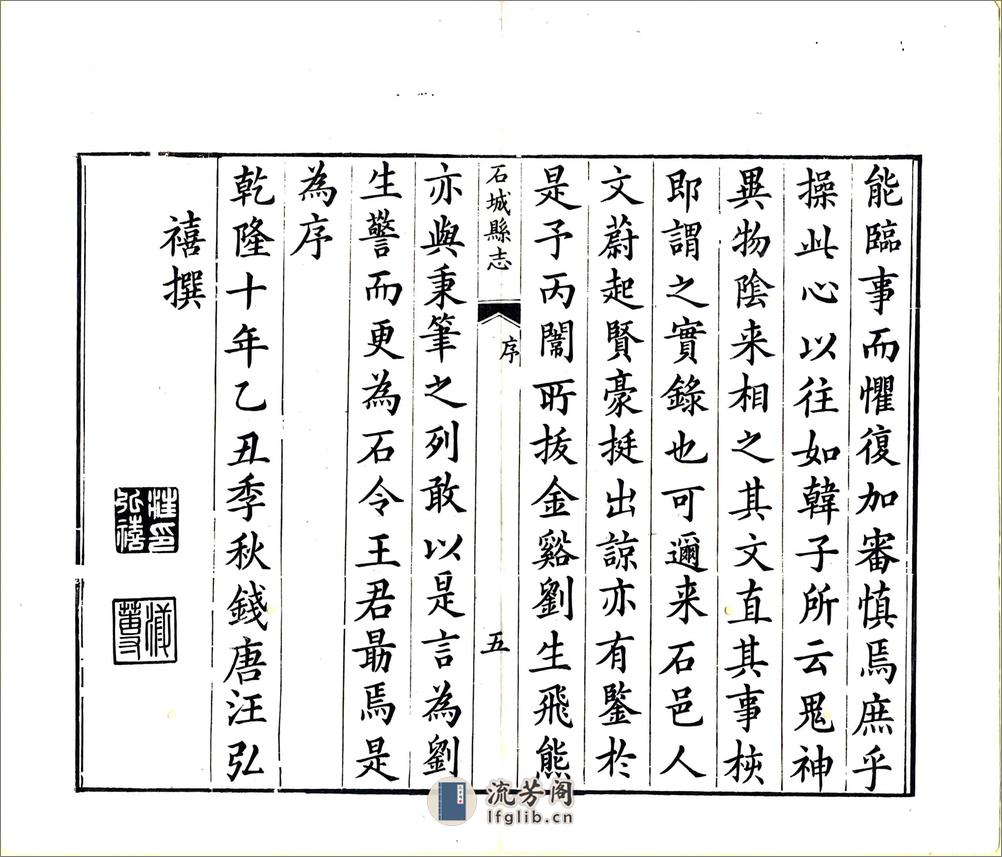 能臨事而懼復加審慎焉庶乎
操此心以往如韓子所云鬼神
異物陰来相之其文直其事核
即謂之實錄也可邇来石邑人
文蔚起賢豪挺出諒亦有鑒於
是予丙闈所拔金谿劉生飛熊
石城縣志
序
五
亦與秉筆之列敢以是言為劉
生警而更為石令王君勗焉是
為序
乾隆十年乙丑季秋錢唐汪弘
禧撰
汪印弘禧
流芳阁
lfglib.cn